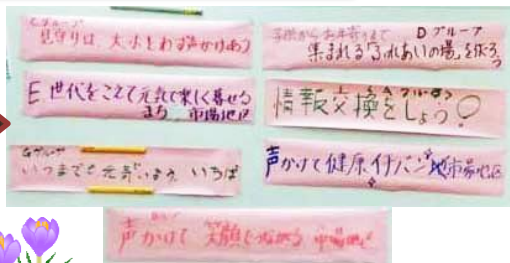 Cグループ
見守りは、大小とわず声かけあう
子供からお年寄りまで Dグループ
集まれる「ふれあいの場」を作ろっ
E 世代をこえて元気で楽しく暮せる
まち 市場地区
Aグループ
情報交換をしよう
Gグループ
いつまでも元気でいよう いちば
声かけて健康 市場地区
声かけて 笑顔でつながる 市場地区